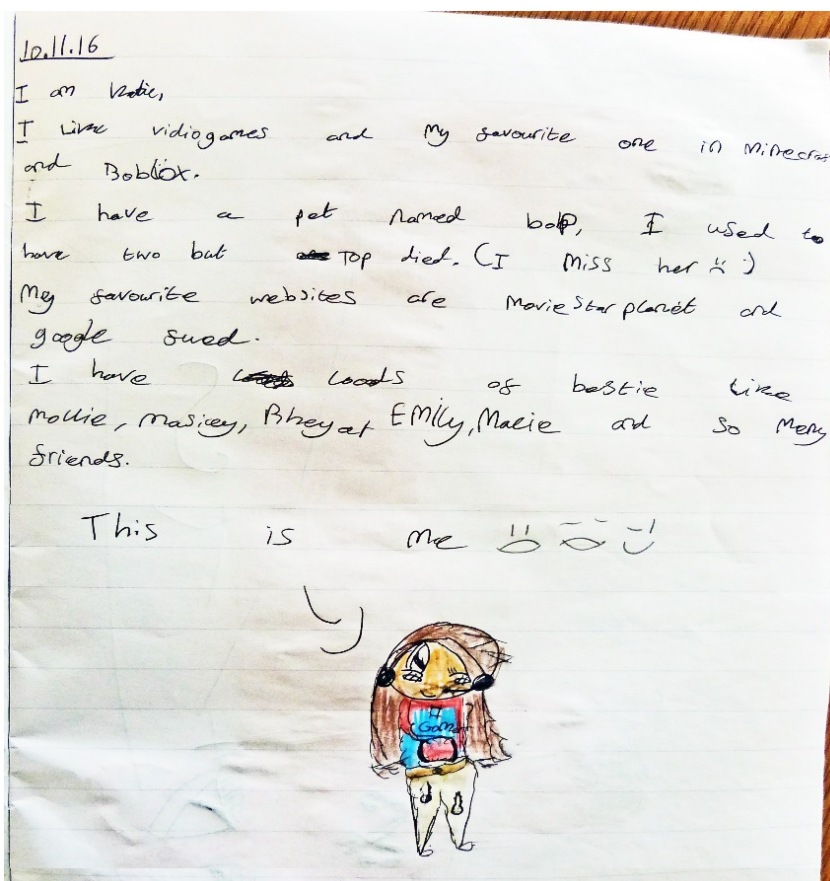 10.11.16
I am Katie,
I Like vidiogames and my favourite one in Minecraf
and Boblox.
I have a pet named bop, I used to
have two but Top died. (I miss her :( )
My favourite websites are MovieStarplanet and
google sued.
I have Loads of bestie Like
Mollie, Masicey, EMily, Macie and so Meny
friends.
This is me
Gamer